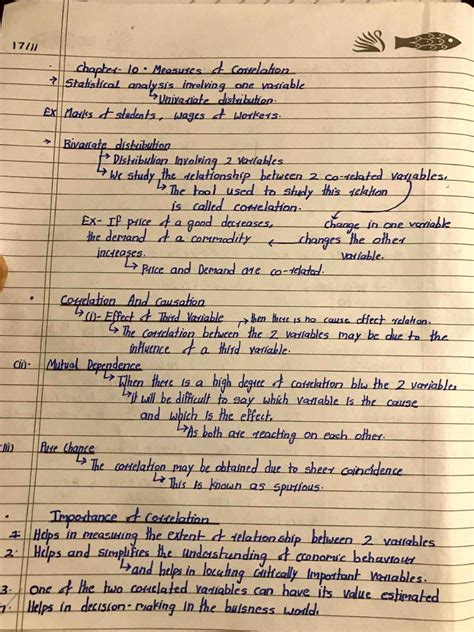 17/11
Chapter-10 • Measures of Correlation
→ Statistical analysis involving one variable
↳ Univariate distribution.
Ex Marks of students, wages of workers.
→ Bivariate distribution
↳ Distribution Involving 2 variables
↳ We study the relationship between 2 co-related variables.
↳ The tool used to study this relation
is called correlation.
Ex- If price of a good decreases, change in one variable
the demand of a commodity ← changes the other
increases. variable.
↳ Price and Demand are co-related.
• Correlation And Causation
↳ (i)- Effect of Third Variable ↳ then there is no cause effect relation.
↳ The correlation between the 2 variables may be due to the
influence of a third variable.
(ii)- Mutual Dependence
↳ When there is a high degree of correlation b/w the 2 variables
↳ it will be difficult to say which variable is the cause
and which is the effect.
↳ As both are reacting on each other.
(iii) Pure Chance
↳ The correlation may be obtained due to sheer coincidence
↳ This is known as spurious.
• Importance of Correlation
1. Helps in measuring the extent of relationship between 2 variables
2. Helps and simplifies the understanding of economic behaviour
↳ and helps in locating critically important variables.
3. One of the two correlated variables can have its value estimated
Helps in decision-making in the buisness world.